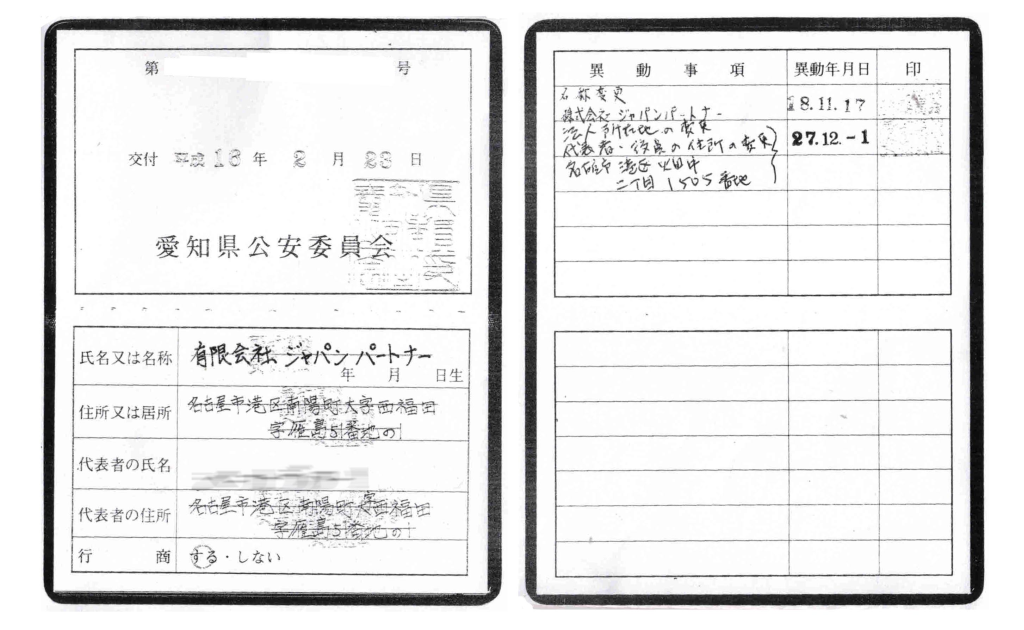 第　　　　号
交付 平成 16 年 2 月 23 日
愛知県公安委員会
氏名又は名称 有限会社 ジャパンパートナー
年 月 日生
住所又は居所 名古屋市港区南陽町大字西福田
字雁島51番地の1
代表者の氏名
代表者の住所 名古屋市港区南陽町大字西福田
字雁島51番地の1
行商 する・しない
異動事項 異動年月日 印
名称変更
株式会社 ジャパンパートナー 18.11.17
法人所在地の変更
代表者・役員の住所の変更 27.12.-1
名古屋市港区
二丁目1505番地